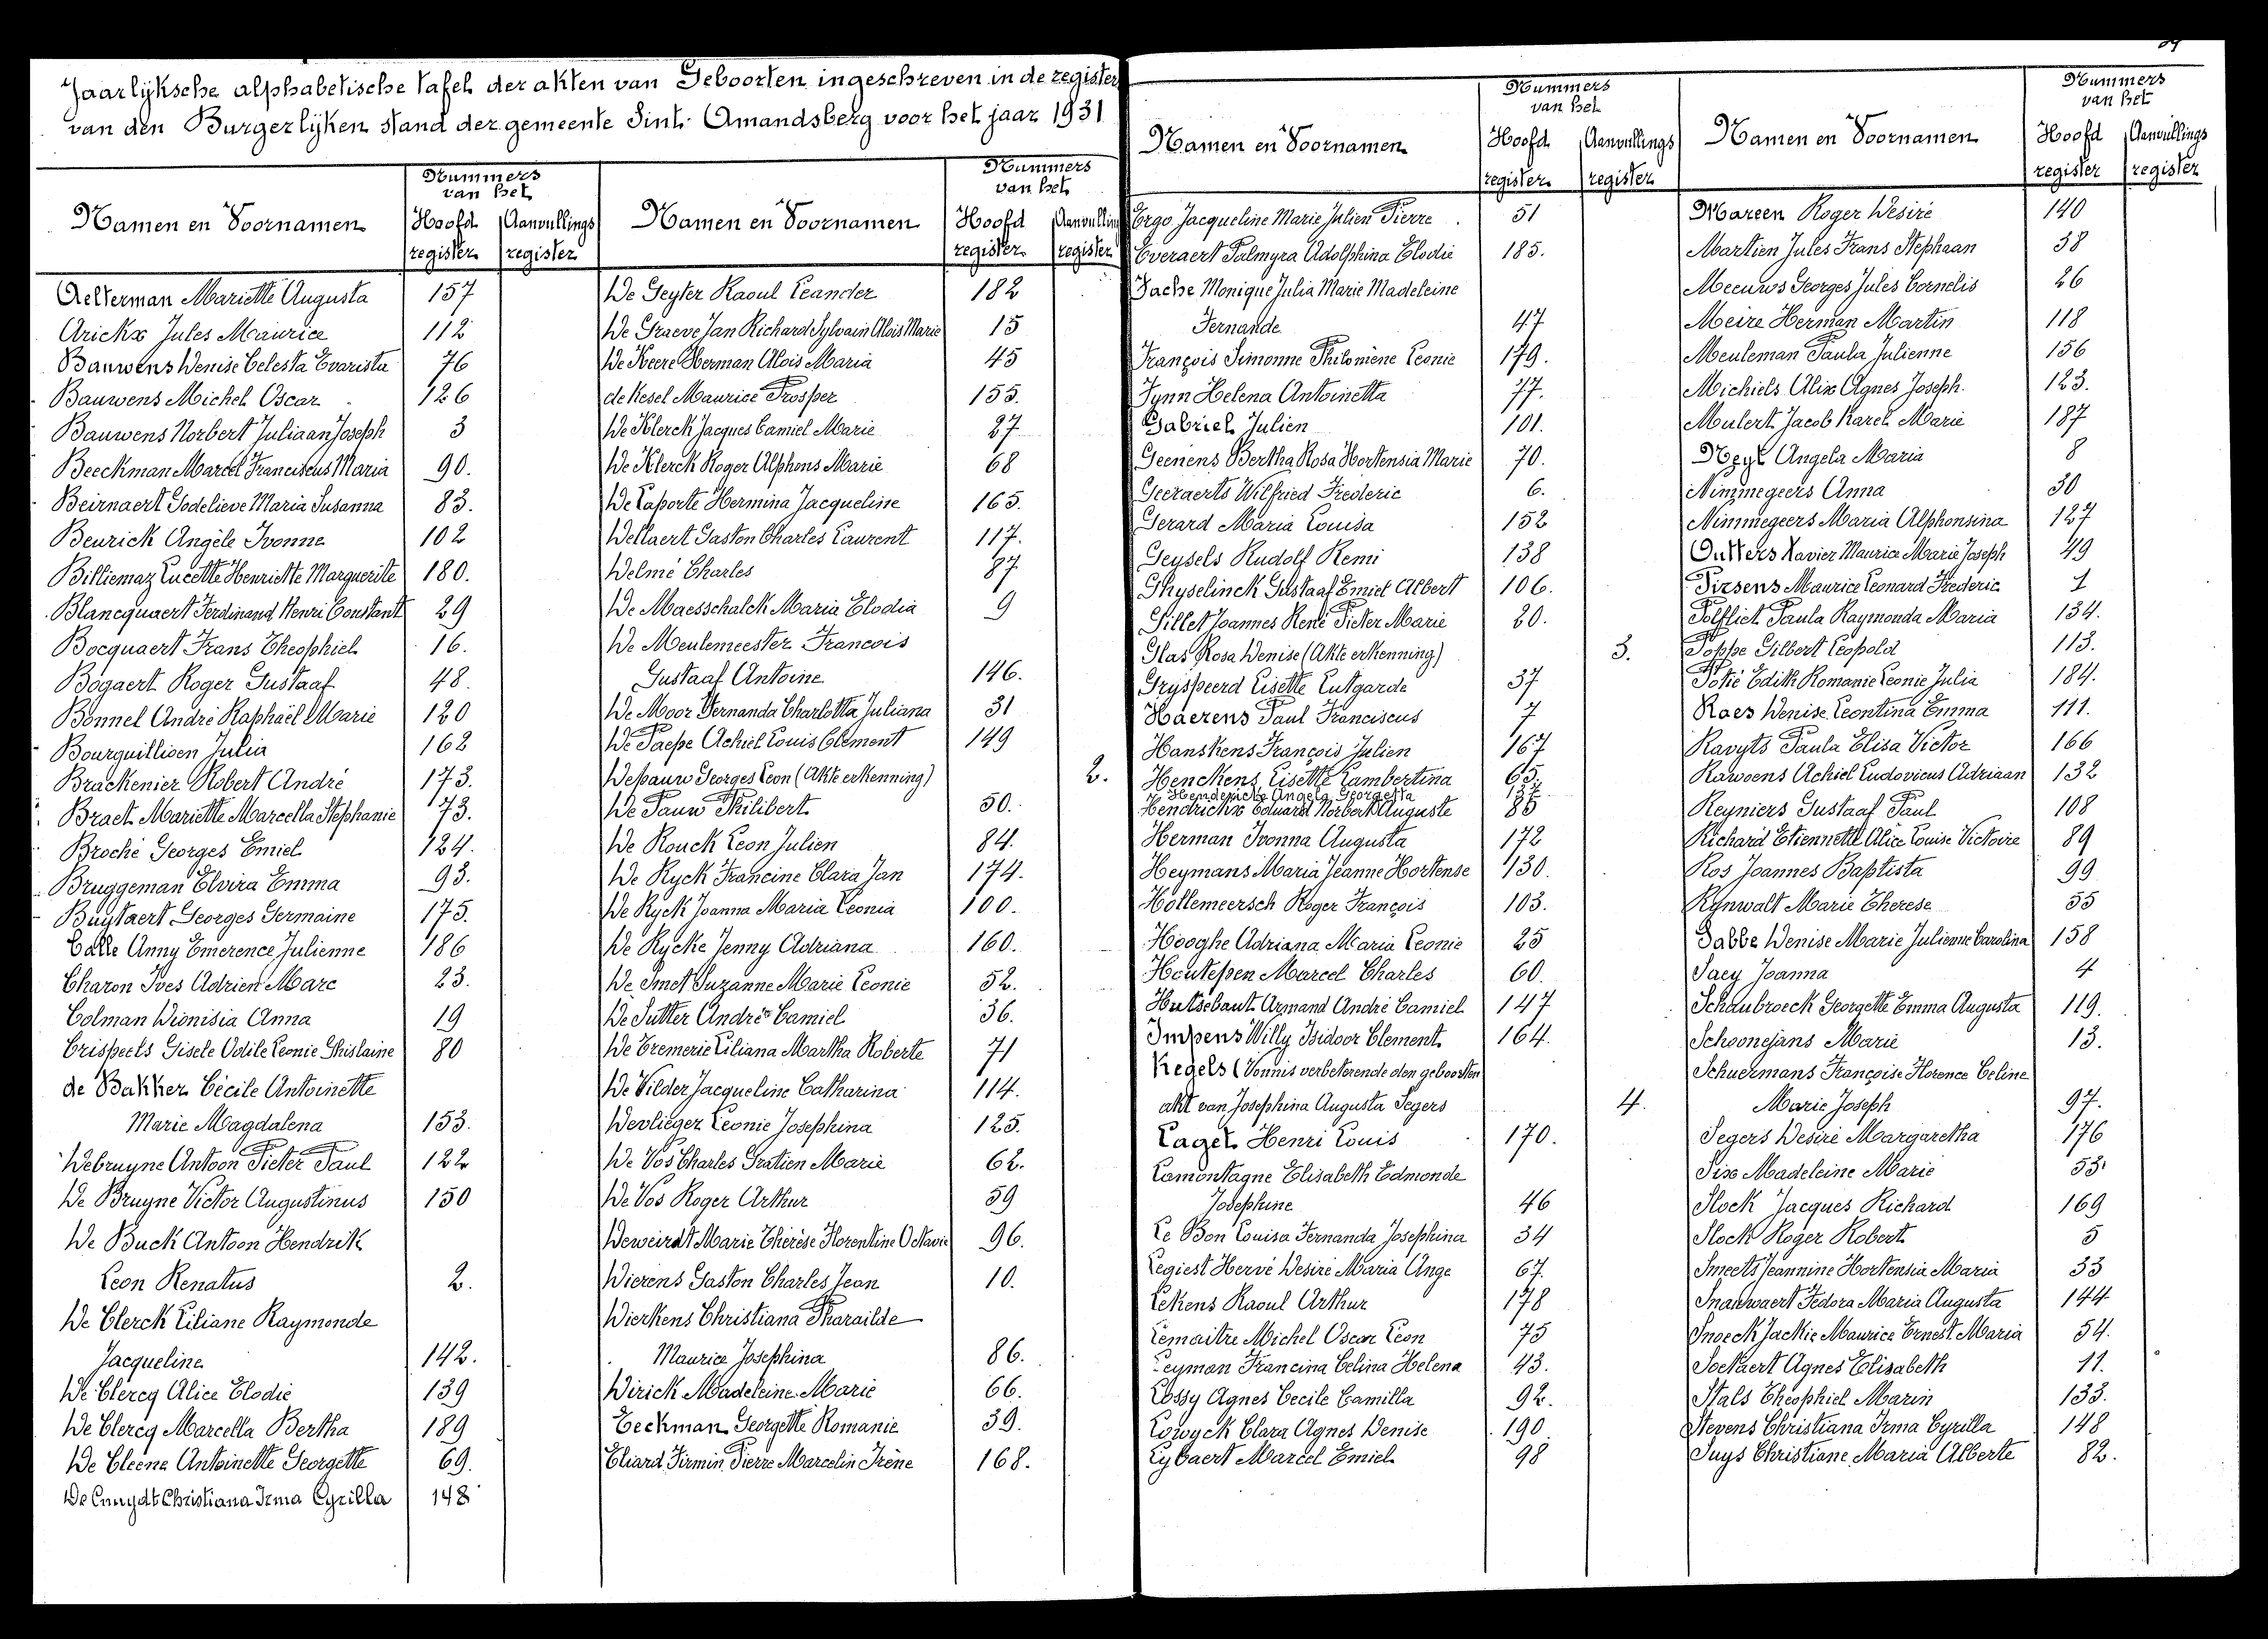 Jaarlijksche alphabetische tafel der akten van Geboorten ingeschreven in de register
van den Burgerlijken stand der gemeente Sint-Amandsberg voor het jaar 1931
Namen en Voornamen Nummers van het Hoofd register Aanvullings register
Aelterman Mariette Augusta 157
Arickx Jules Maurice 112
Bauwens Denise Celesta Evarista 76
Bauwens Michel Oscar 126
Bauwens Norbert Juliaan Joseph 3
Beeckman Marcel Franciscus Maria 90.
Beirnaert Godelieve Maria Susanna 83.
Beurick Angèle Ivonne 102
Billiemaz Lucette Henriette Marguerite 180.
Blancquaert Ferdinand Henri Constant 29
Bocquaert Frans Theophiel 16.
Bogaert Roger Gustaaf 48.
Bonnel André Raphaël Marie 120
Bourguillioen Julia 162
Brackenier Robert André 173.
Braet Mariette Marcella Stephanie 73.
Broché Georges Emiel 124.
Bruggeman Elvira Emma 93.
Buytaert Georges Germaine 175.
Calle Anny Emerence Julienne 186
Charon Ives Adrien Marc 23.
Colman Dionisia Anna 19
Crispeels Gisele Odile Leonie Ghislaine 80
de Bakker Cécile Antoinette
Marie Magdalena 153.
Debruyne Antoon Pieter Paul 122
De Bruyne Victor Augustinus 150
De Buck Antoon Hendrik
Leon Renatus 2.
De Clerck Liliane Raymonde
Jacqueline 142.
De Clercq Alice Elodie 139
De Clercq Marcella Bertha 189
De Cleene Antoinette Georgette 69.
De Cnuydt Christiana Irma Cyrilla 148
Namen en Voornamen Nummers van het Hoofd register Aanvulling register
De Geyter Raoul Leander 182
De Graeve Jan Richard Sylvain Aloïs Marie 15
De Keere Herman Alois Maria 45
de Kesel Maurice Prosper 155.
De Klerck Jacques Camiel Marie 27
De Klerck Roger Alphons Marie 68
De Laporte Hermina Jacqueline 165.
Dellaert Gaston Charles Laurent 117.
Delmé Charles 87
De Maesschalck Maria Elodia 9
De Meulemeester Francois
Gustaaf Antoine 146.
De Moor Fernanda Charlotta Juliana 31
De Paepe Achiel Louis Clement 149
Depauw Georges Leon (Akte erkenning) 2.
De Pauw Philibert 50.
De Rouck Leon Julien 84.
De Ryck Francine Clara Jan 174.
De Ryck Joanna Maria Leonia 100.
De Rycke Jenny Adriana 160.
De Smet Suzanne Marie Leonie 52.
De Sutter André Camiel 36.
De Tremerie Liliana Martha Roberte 71
De Vilder Jacqueline Catharina 114.
Devlieger Leonie Josephina 125.
De Vos Charles Gratien Marie 62.
De Vos Roger Arthur 59
Deweirdt Marie Thérèse Florentine Octavie 96.
Dierens Gaston Charles Jean 10.
Dierkens Christiana Pharailde
Maurice Josephina 86.
Dirick Madeleine Marie 66.
Eeckman Georgette Romanie 39.
Eliard Firmin Pierre Marcelin Irène 168.
Namen en Voornamen Nummers van het Hoofd register Aanvullings register
Ergo Jacqueline Marie Julien Pierre 51
Everaert Palmyra Adolphina Elodie 185.
Fache Monique Julia Marie Madeleine
Fernande 47
François Simonne Philomène Leonie 179.
Fynn Helena Antoinetta 77.
Gabriel Julien 101.
Geenens Bertha Rosa Hortensia Marie 70.
Geeraerts Wilfried Frederic 6.
Gerard Maria Louisa 152
Geysels Rudolf Remi 138
Ghyselinck Gustaaf Emiel Albert 106.
Gillet Joannes René Pieter Marie 20.
Glas Rosa Denise (Akte erkenning) 3.
Gryspeerd Lisette Lutgarde 37
Haerens Paul Franciscus 7
Hanskens François Julien 167
Henckens Lisette Lambertina 65.
Henderickx Angela Georgetta 137
Hendrickx Eduard Norbert Auguste 85
Herman Ivonna Augusta 172
Heymans Maria Jeanne Hortense 130.
Hollemeersch Roger François 103.
Hooghe Adriana Maria Leonie 25
Houtepen Marcel Charles 60.
Hutsebaut Armand André Camiel 147
Impens Willy Isidoor Clement 164.
Kegels (Vonnis verbeterende den geboorten
akt van Josephina Augusta Segers 4.
Laget Henri Louis 170.
Lamontagne Elisabeth Edmonde
Josephine 46
Le Bon Louisa Fernanda Josephina 34
Legiest Hervé Desiré Maria Ange 67.
Lekens Raoul Arthur 178
Lemaitre Michel Oscar Leon 75
Leyman Francina Celina Helena 43.
Lossy Agnes Cecile Camilla 92.
Lowyck Clara Agnes Denise 190
Lybaert Marcel Emiel 98
Namen en Voornamen Nummers van het Hoofd register Aanvullings register
Mareen Roger Desiré 140
Martien Jules Frans Stephaan 38
Meeuws Georges Jules Cornelis 26
Meire Herman Martin 118
Meuleman Paula Julienne 156
Michiels Alix Agnes Joseph 123.
Mulert Jacob Karel Marie 187
Neyt Angela Maria 8
Nimmegeers Anna 30
Nimmegeers Maria Alphonsina 127
Outters Xavier Maurice Marie Joseph 49
Pirsens Maurice Leonard Frederic 1
Polfliet Paula Raymonda Maria 134.
Poppe Gilbert Leopold 113.
Potié Edith Romanie Leonie Julia 184.
Raes Denise Leontina Emma 111.
Ravyts Paula Elisa Victor 166
Rawoens Achiel Ludovicus Adriaan 132
Reyniers Gustaaf Paul 108
Richard Etiennette Alice Louise Victoire 89
Ros Joannes Baptista 99
Rynwalt Marie Therese 55
Sabbe Denise Marie Julienne Carolina 158
Saey Joanna 4
Schaubroeck Georgette Emma Augusta 119.
Schoonejans Marie 13.
Schuermans Françoise Florence Celine
Marie Joseph 97.
Segers Desiré Margaretha 176
Six Madeleine Marie 53
Slock Jacques Richard 169
Slock Roger Robert 5
Smeets Jeannine Hortensia Maria 33
Snauwaert Fedora Maria Augusta 144
Snoeck Jackie Maurice Ernest Maria 54.
Soetaert Agnes Elisabeth 11.
Stals Theophiel Marin 133.
Stevens Christiana Irma Cyrilla 148
Suys Christiane Maria Alberte 82.